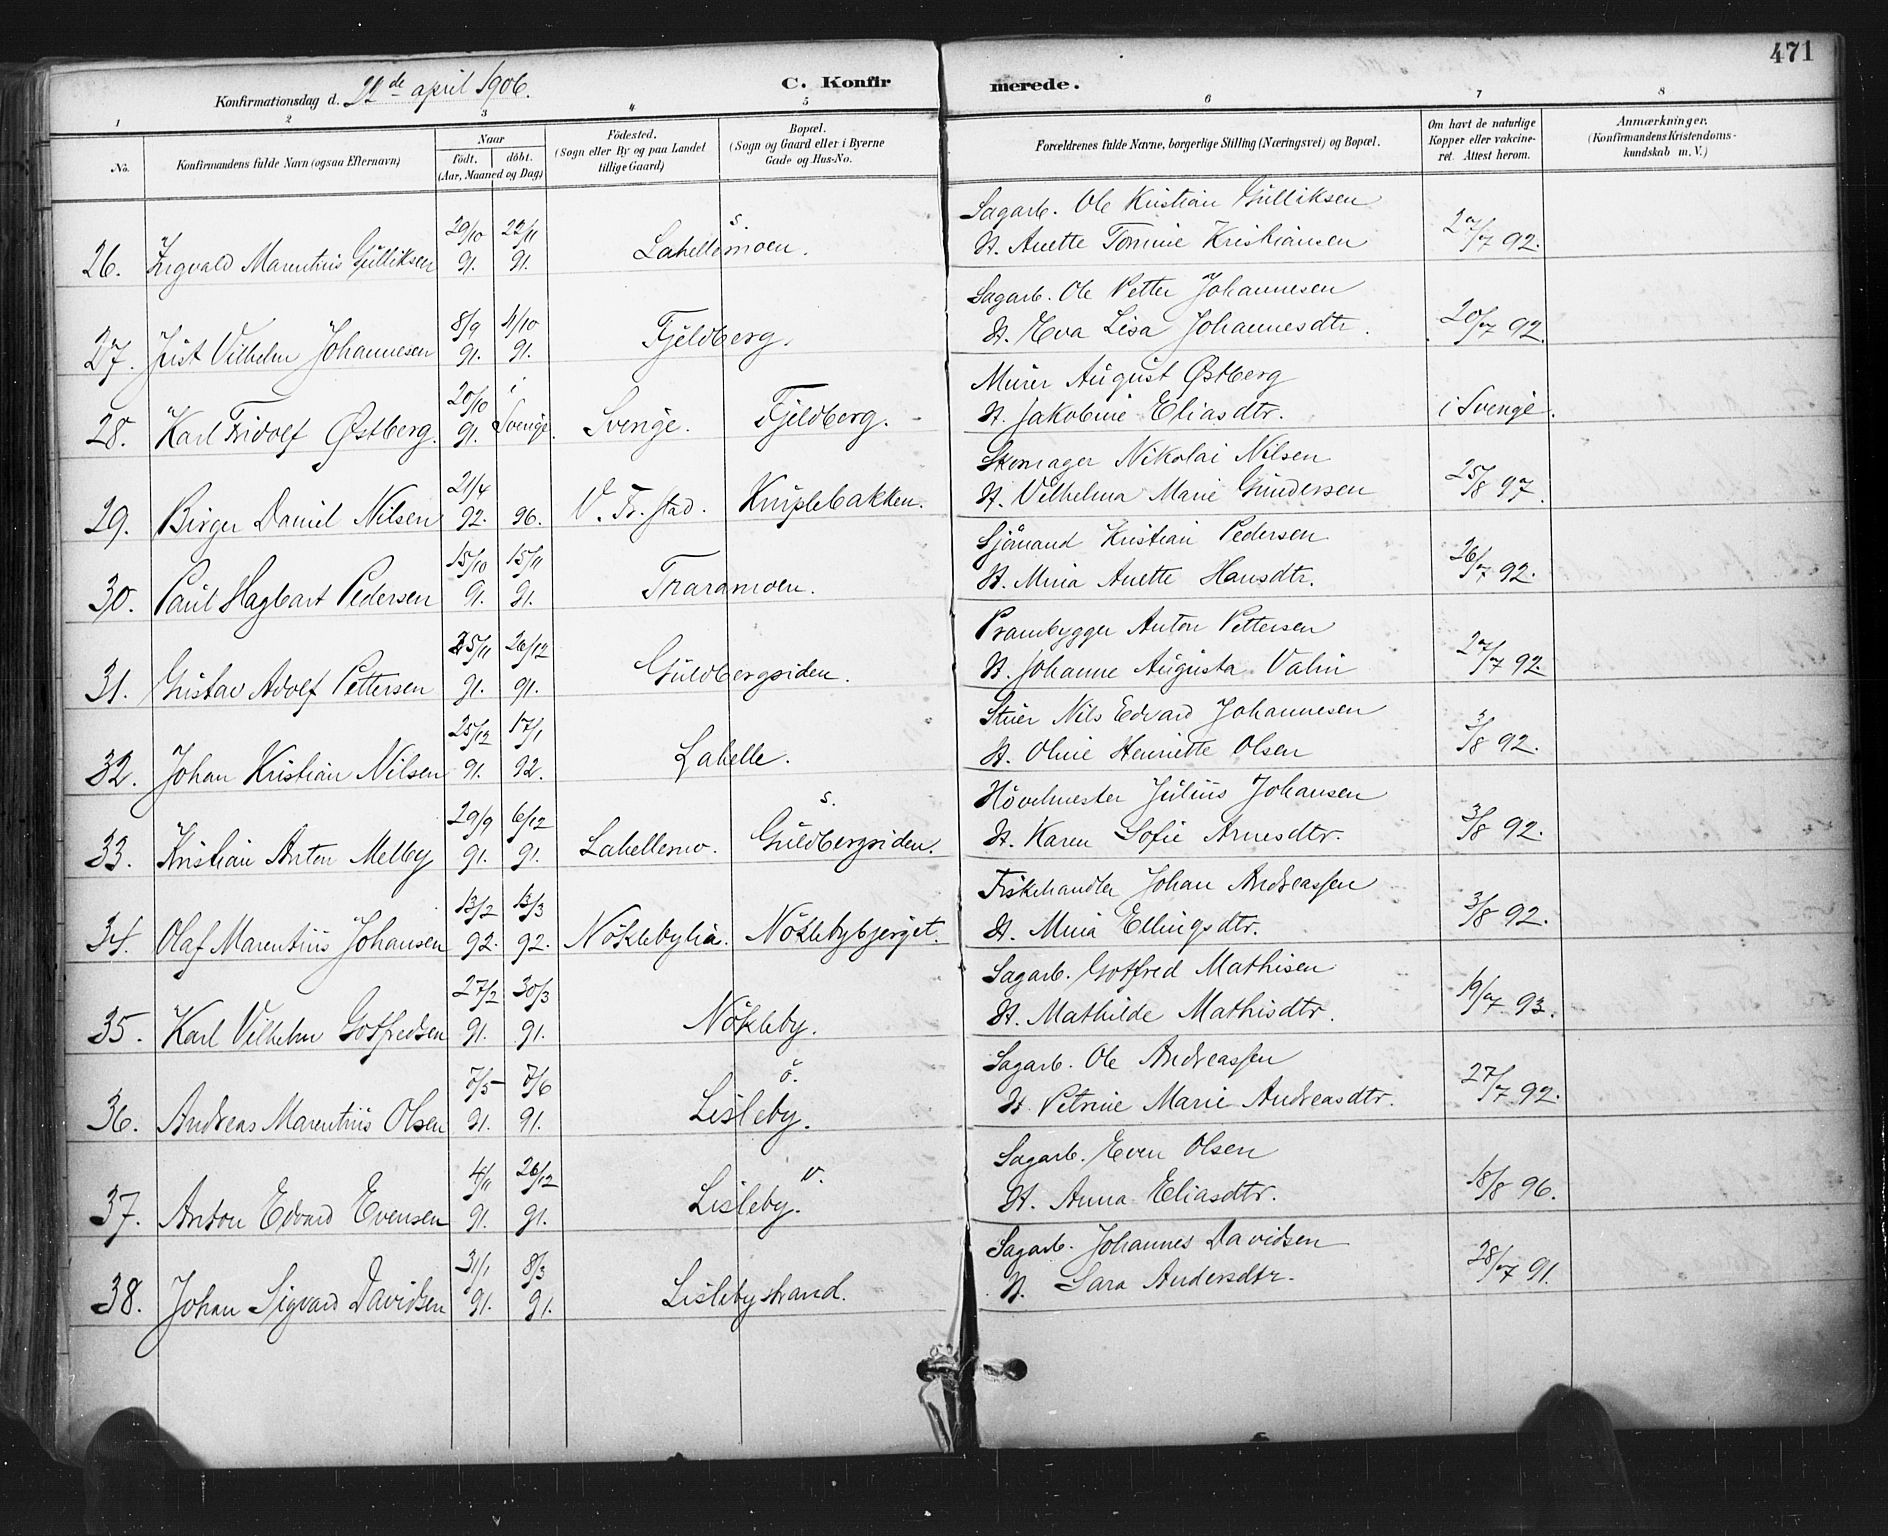 471
Konfirmationsdag d. 22de april 1906.
C. Konfirmerede.
1 2 3 4 5 6 7 8
No.
Konfirmandens fulde Navn (ogsaa Efternavn)
Naar
födt. döbt.
(Aar, Maaned og Dag)
Födested.
(Sogn eller By og paa Landet
tillige Gaard)
Bopæl.
(Sogn og Gaard eller i Byerne
Gade og Hus-No.
Forældrenes fulde Navne, borgerlige Stilling (Næringsvei) og Bopæl.
Om havt de naturlige
Kopper eller vakcine-
ret. Attest herom.
Anmærkninger.
(Konfirmandens Kristendoms-
kundskab m. V.)
26. Ingvald Marentius Gulliksen 29/10 91. 22/11 91. Lahellemoen. s.
Sagarb. Ole Kristian Gulliksen
H. Anette Tomine Kristiansen 27/7 92.
27. Just Vilhelm Johannesen 8/9 91. 4/10 91. Fjeldberg.
Sagarb. Ole Petter Johannesen
H. Eva Lisa Johannesdtr. 20/7 92.
28. Karl Fridolf Østberg. 20/10 91. i Sverige. Sverige. Fjeldberg.
Murer August Østberg
H. Jakobine Eliasdtr. i Sverige.
29. Birger Daniel Nilsen 21/4 92. 96. V. Fr.stad. Kniplebakken.
Skomager Nikolai Nilsen
H. Vilhelma Marie Gundersen 25/8 97.
30. Paul Hagbart Pedersen 15/10 91. 15/11 91. Traramoen.
Sjømand Kristian Pedersen
H. Mina Anette Hansdtr. 26/7 92.
31. Gustav Adolf Pettersen 25/11 91. 26/12 91. Guldbergsiden.
Prambygger Anton Pettersen
H. Johanne Augusta Valin 27/7 92.
32. Johan Kristian Nilsen 25/12 91. 17/1 92. Lahelle.
Stuer Nils Edvard Johannesen
H. Oline Henriette Olsen 3/8 92.
33. Kristian Anton Melby 29/9 91. 6/12 91. Lahellemo. s. Guldbergsiden.
Hövelmester Julius Johansen
H. Karen Sofie Arnesdtr. 3/8 92.
34. Olaf Marentius Johansen 13/2 92. 13/3 92. Nöklebylia. Nöklebybjerget.
Fiskehandler Johan Andreassen
H. Mina Ellingsdtr. 3/8 92.
35. Karl Vilhelm Gotfredsen 27/2 91. 30/3 91. Nökleby.
Sagarb. Gotfred Mathisen
H. Mathilde Mathisdtr. 19/7 93.
36. Andreas Marentius Olsen 7/5 91. 7/6 91. Lisleby. ö.
Sagarb. Ole Andreassen
H. Petrine Marie Andreasdtr. 27/7 92.
37. Anton Edvard Evensen 4/11 91. 26/12 91. Lisleby. v.
Sagarb. Even Olsen
H. Anna Eliasdtr. 18/8 96.
38. Johan Sigvard Davidsen 31/1 91. 8/3 91. Lislebystrand.
Sagarb. Johannes Davidsen
H. Sara Andersdtr. 28/7 91.